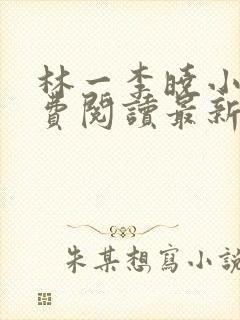 林一李曉小
費閱讀最新
朱某想寫小說